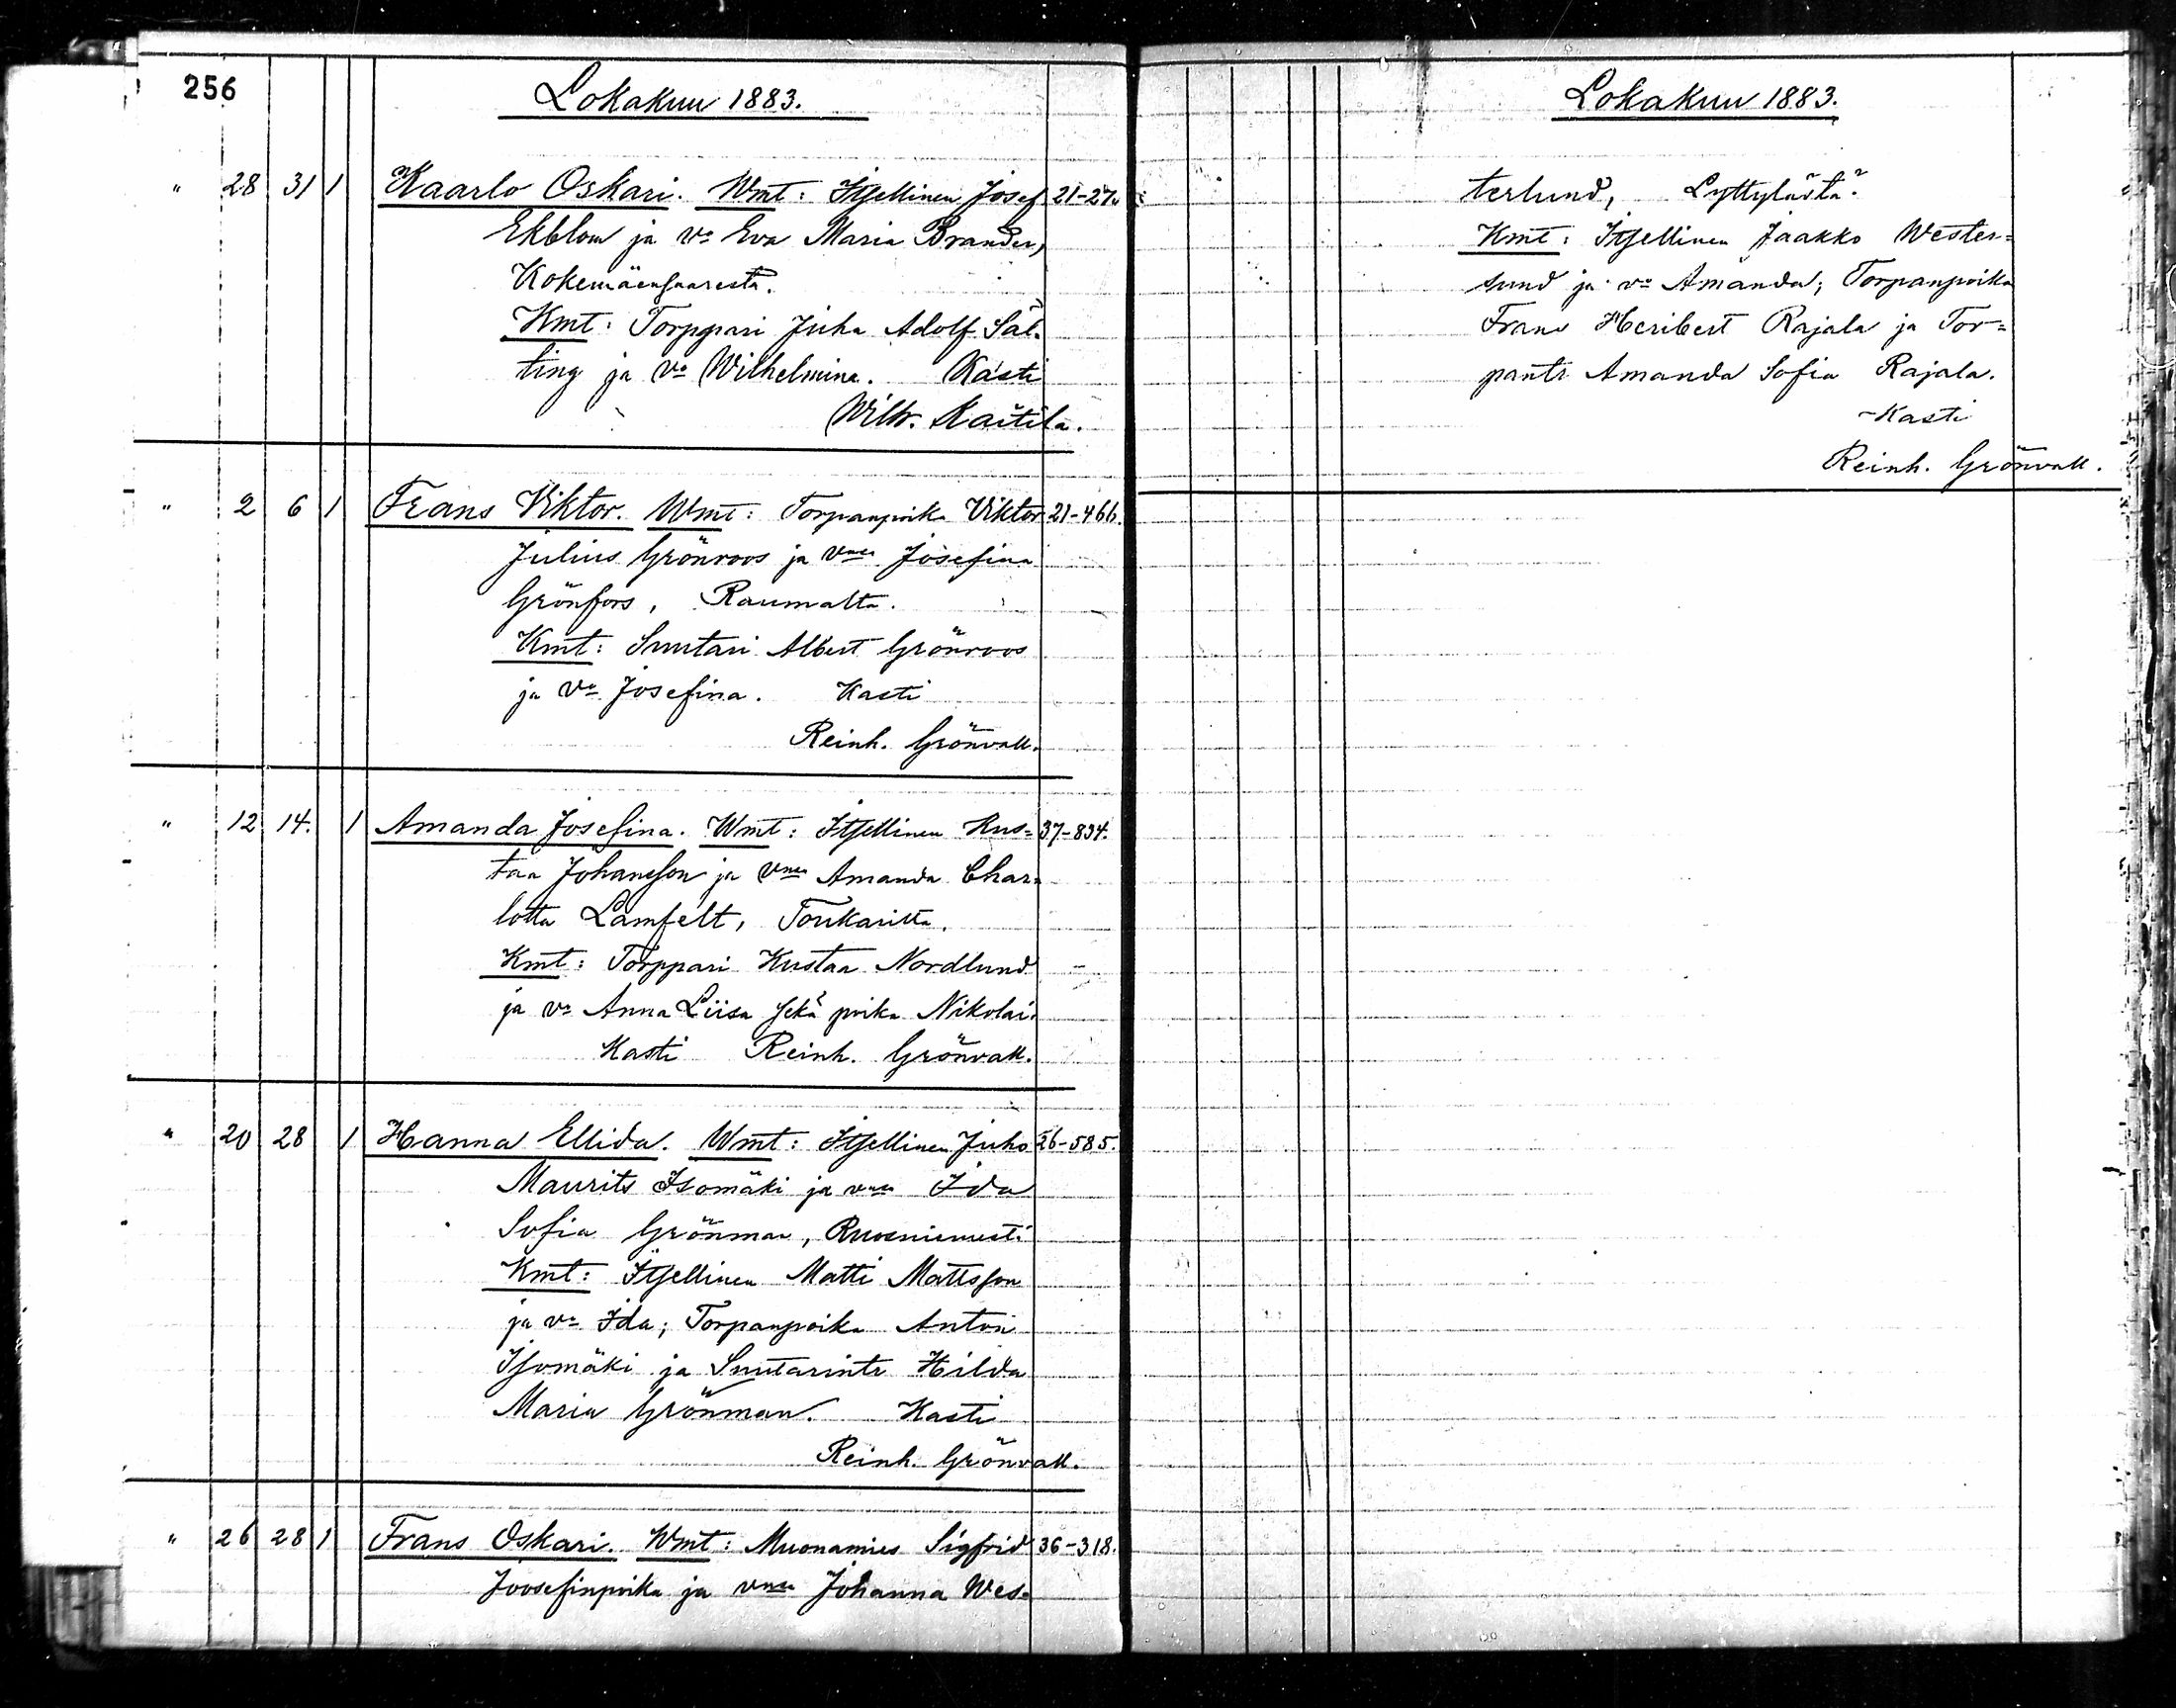 256
Lokakuu 1883.
" 28 31 1 Kaarlo Oskari. Wmt: Itsellinen Josef 21-27.
Ekblom ja vo Eva Maria Brander,
Kokemäensaaresta.
Kmt: Torppari Juha Adolf Säl-
ting ja vo Wilhelmina. Kasti
Wilh. Kaitila.
" 2 6 1 Frans Viktor. Wmt: Torpanpoika Viktor 21-466.
Julius Grönroos ja vmsa Josefina
Grönfors, Raumalta.
Kmt: Suutari Albert Grönroos
ja vo Josefina. Kasti
Reinh. Grönvall.
" 12 14. 1 Amanda Josefina. Wmt: Itsellinen Kus= 37-834.
taa Johansson ja vmsa Amanda Char=
lotta Lamfelt, Toukarilta.
Kmt: Torppari Kustaa Nordlund
ja vo Anna Liisa sekä poika Nikolai.
Kasti Reinh. Grönvall.
" 20 28 1 Hanna Ellida. Wmt: Itsellinen Juho 26-585.
Maurits Isomäki ja vmsa Ida
Sofia Grönman,
Kmt: Itsellinen Matti Mattsson
ja vo Ida; Torpanpoika Anton
Isomäki ja Suutarintr Hilda
Maria Grönman. Kasti
Reinh. Grönvall.
" 26 28 1 Frans Oskari. Wmt: Muonamies Sigfrid 36-318.
Joosefinpoika ja vmsa Johanna Wes=
Lokakuu 1883.
terlund, Lyttylästä.
Kmt: Itsellinen Jaakko Wester=
lund ja vo Amanda; Torpanpoika
Frans Heribert Rajala ja Tor=
pantr Amanda Sofia Rajala.
Kasti
Reinh. Grönvall.